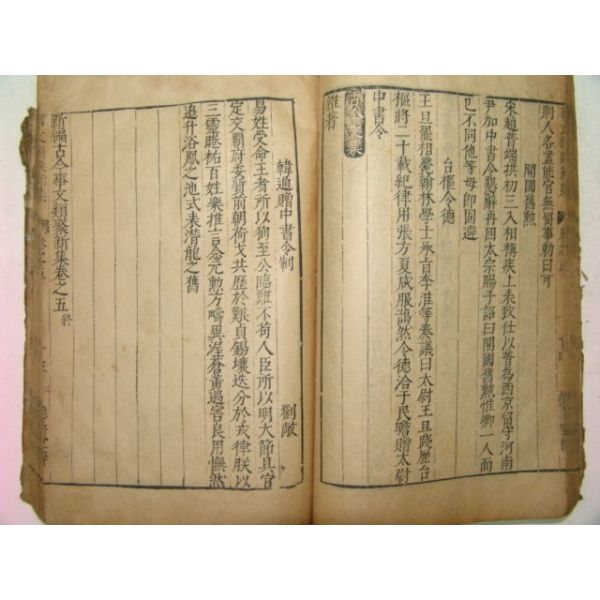 則人各盡能官無留事勅曰可
開國舊勲
宋趙普端拱初三入相稱疾上表致仕以普為西京留守河南
尹加中書令懇辭再四太宗賜手詔曰開國舊勲惟卿一人而
已不同他等毋即固避
台權令德
王旦罷相麾翰林學士承旨李淮等奏議曰太尉王旦踐歷台
樞將二十載紀律用張方夏咸服謁然令德洽于民瞻贈太尉
中書令
雜著
古今文集
韓通贈中書令制
劉敞
易姓受命王者所以徇至公臨難不苟人臣所以明大節具官
定交覇府委質前朝荷戈共歷於艱貞錫壤迭分於戎律朕以
三靈睠祐百姓樂推言念元勲方疇異渥蒼黃遇害良用憮然
追升浴鳳之池式表潛龍之舊
新編古今事文類聚新集卷之五
終